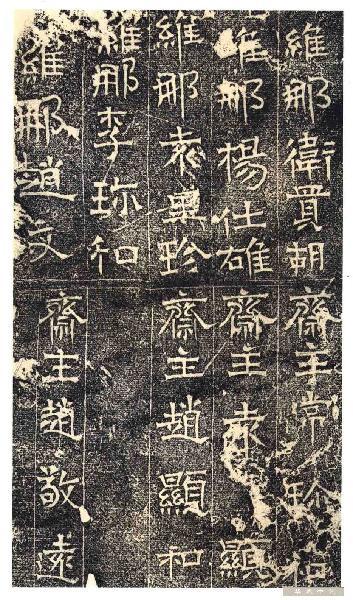 維那衛貫胡
維那楊仕雄
維那袁珎
維那李珎和
維那趙文
齋主常珎
齋主袁顯
齋主趙顯和
齋主趙敬遠